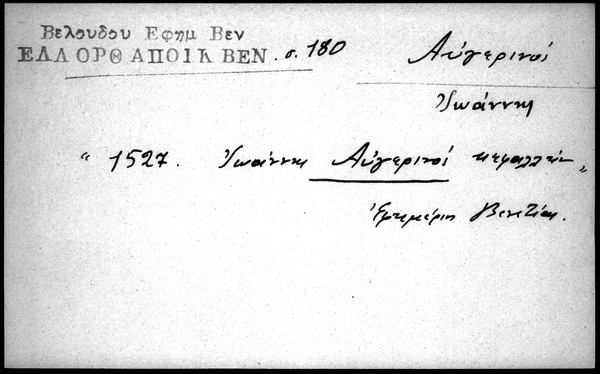 Βελουδου Εφημ Βεν
ΕΛΛ ΟΡΘ ΑΠΟΙΚ ΒΕΝ. σ. 180
Αὐγερινοί
Ἰωάννης
" 1527. Ἰωάννης Αὐγερινοί κεφαλλήν "
Ἐφημέριος Βενετίας.